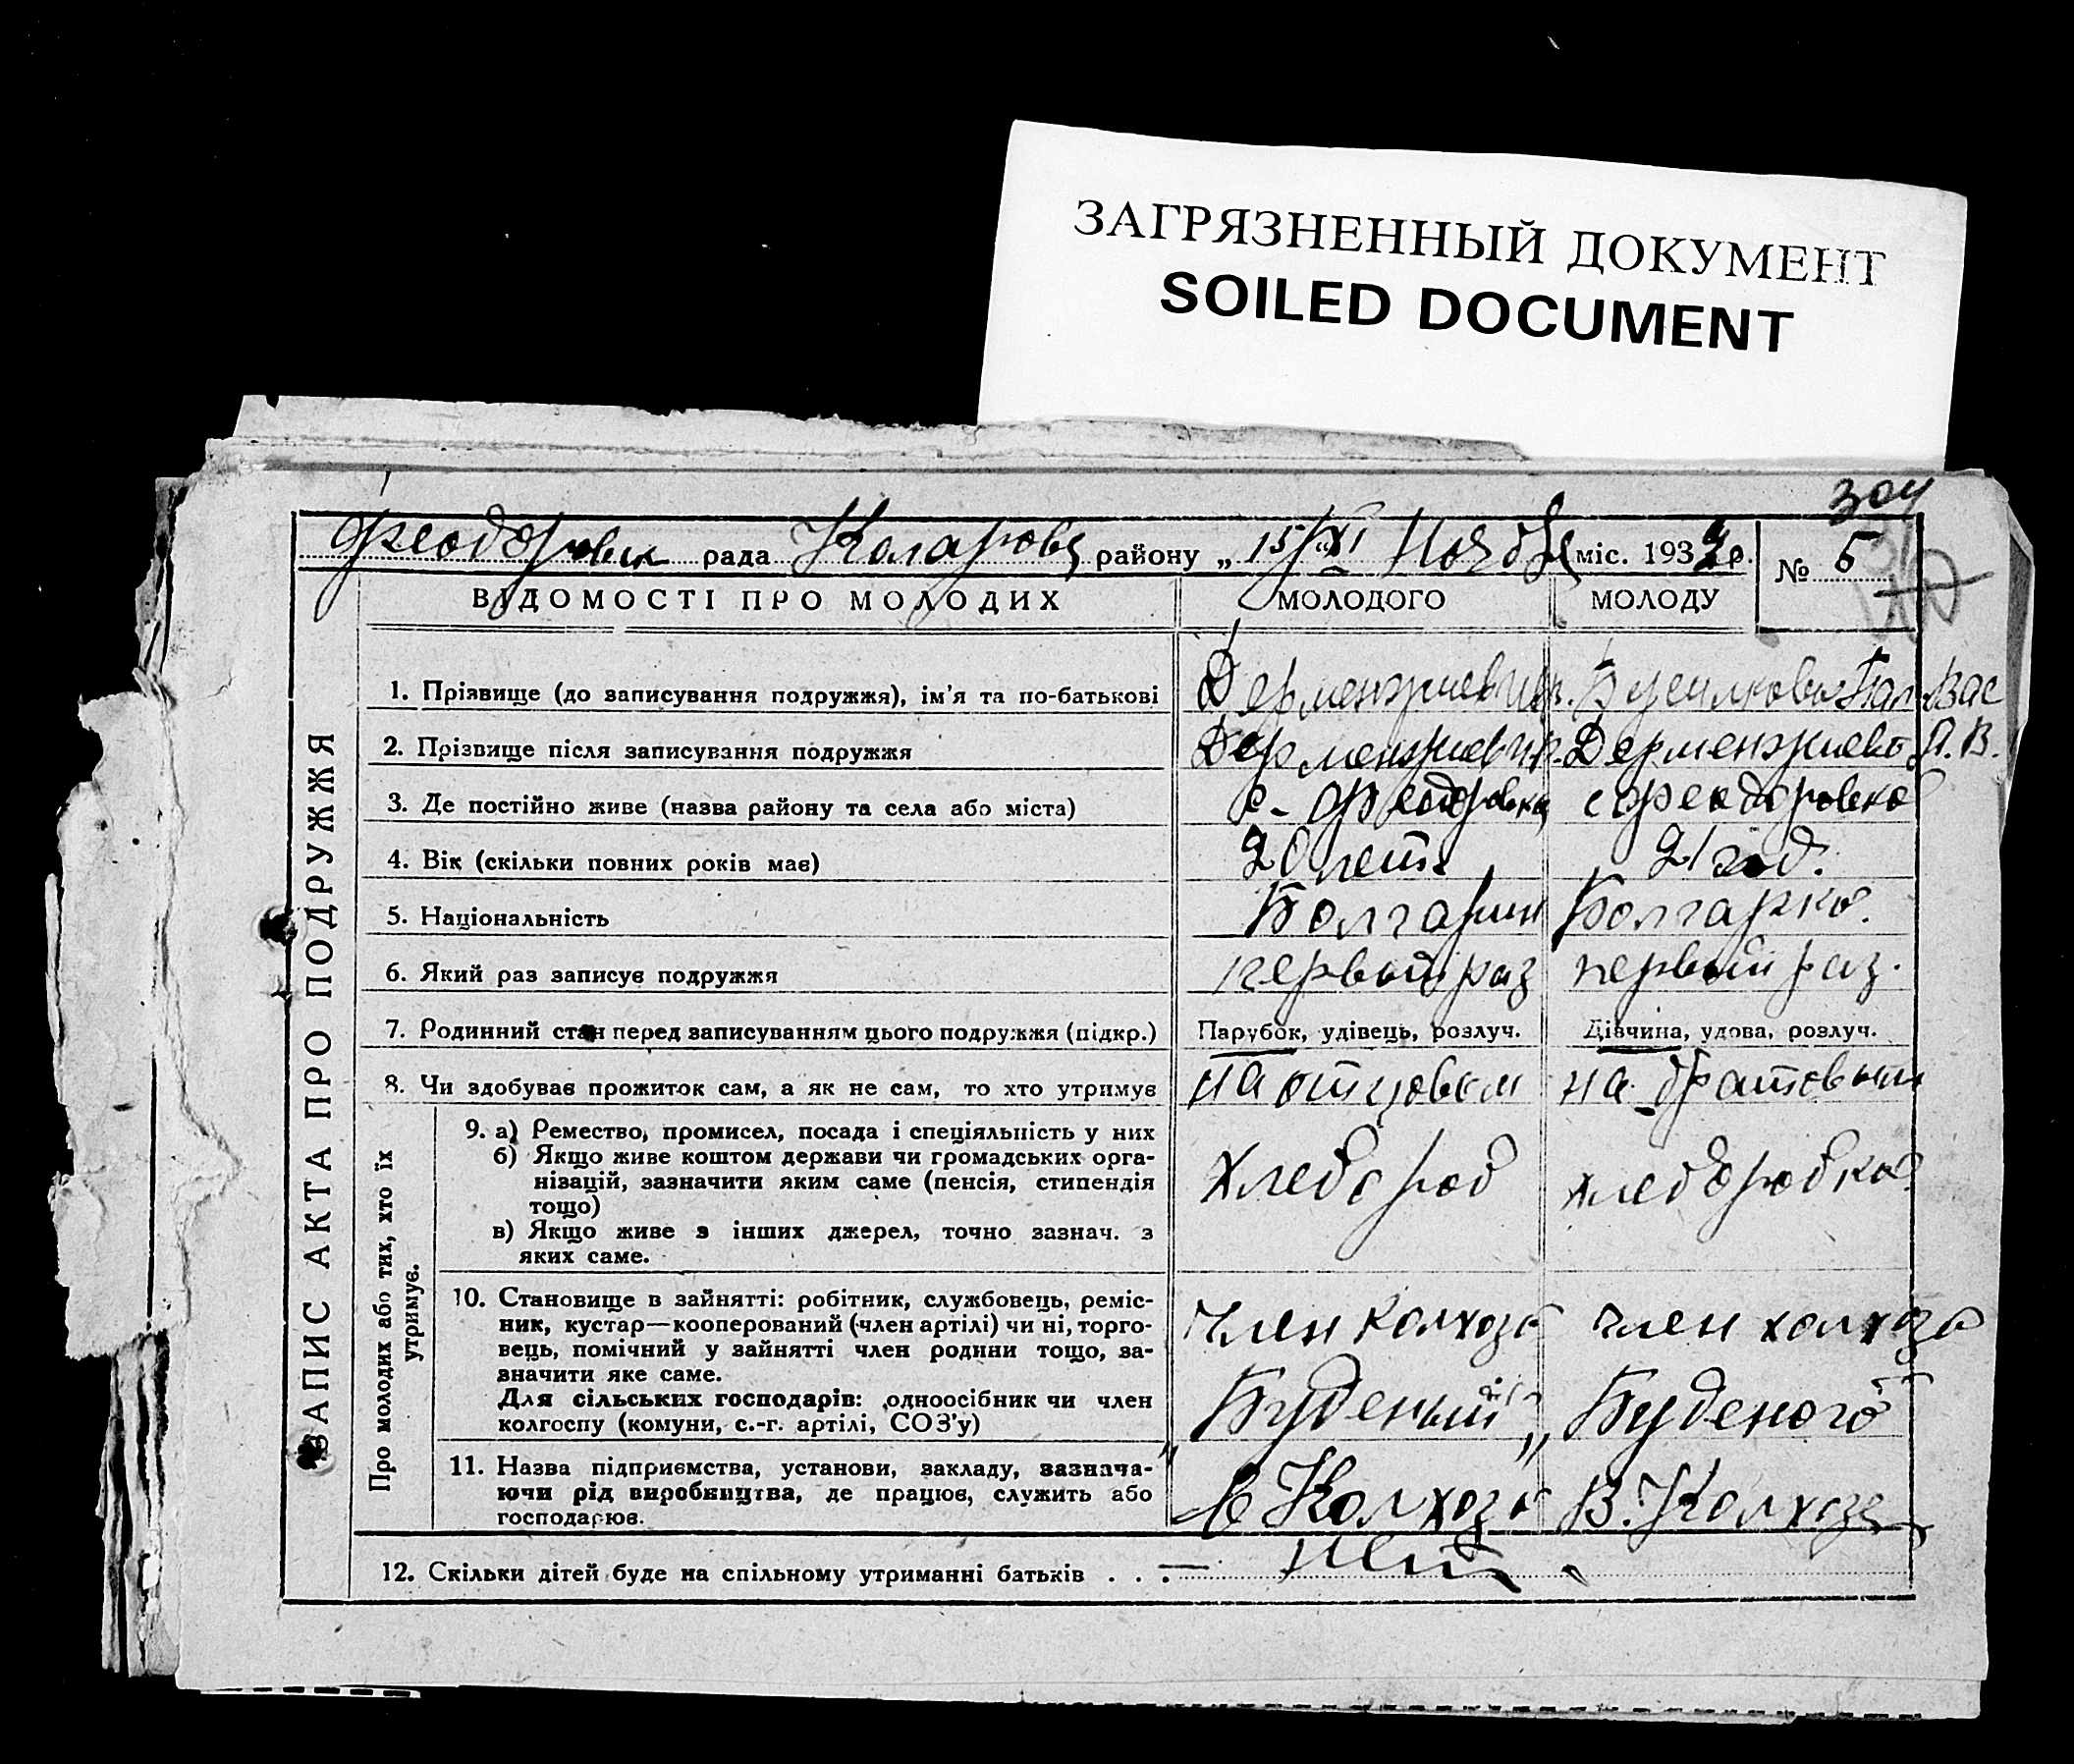 ЗАГРЯЗНЕННЫЙ ДОКУМЕНТ
SOILED DOCUMENT
304
Феодоровск рада Коларовс району „ 15/XI Ноябр міс. 193 р. № 5
ВІДОМОСТІ ПРО МОЛОДИХ МОЛОДОГО МОЛОДУ
ЗАПИС АКТА ПРО ПОДРУЖЖЯ
1. Прізвище (до записування подружжя), ім'я та по-батькові Дерменжиев Вас
2. Прізвище після записування подружжя Дерменжиев Дерменжиева П. В.
3. Де постійно живе (назва району та села або міста) с. Феодоровка с Феодоровка
4. Вік (скільки повних років має) 20 лет. 21 год.
5. Національність Болгарин Болгарка.
6. Який раз записує подружжя первый раз первый раз.
7. Родинний стан перед записуванням цього подружжя (підкр.) Парубок, удівець, розлуч. Дівчина, удова, розлуч.
8. Чи здобуває прожиток сам, а як не сам, то хто утримує на отцовым на братовым
Про молодих або тих, хто їх
утримує.
9. а) Ремество, промисел, посада і спеціяльність у них
б) Якщо живе коштом держави чи громадських орга-
нізацій, зазначити яким саме (пенсія, стипендія
тощо)
в) Якщо живе з інших джерел, точно зазнач. з
яких саме.
хлебороб хлеборобка
10. Становище в зайнятті: робітник, службовець, реміс-
ник, кустар—кооперований (член артілі) чи ні, торго-
вець, помічний у зайнятті член родини тощо, за-
значити яке саме.
Для сільських господарів: одноосібник чи член
колгоспу (комуни, с.-г. артілі, СОЗ'у)
член колхоза член колхоза
Буденый" „Буденого"
11. Назва підприємства, установи, закладу, зазнача-
ючи рід виробництва, де працює, служить або
господарює.
в Колхозе В. Колхозе
12. Скільки дітей буде на спільному утриманні батьків . . . — нет